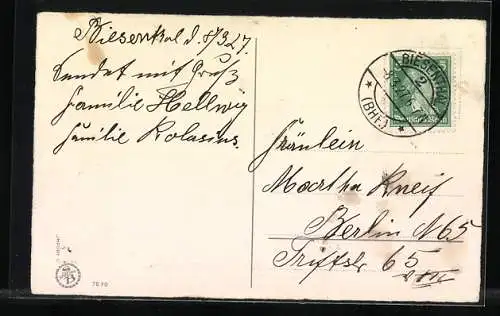 Biesenthal d. 8/3 27.
Sendet mit Gruß
Familie Hellwig
Familie Rolasius
BIESENTHAL
2
* (BHF.) *
Deutsches Reich
Fräulein
Martha Kneif
Berlin N65
Triftstr 65
7670